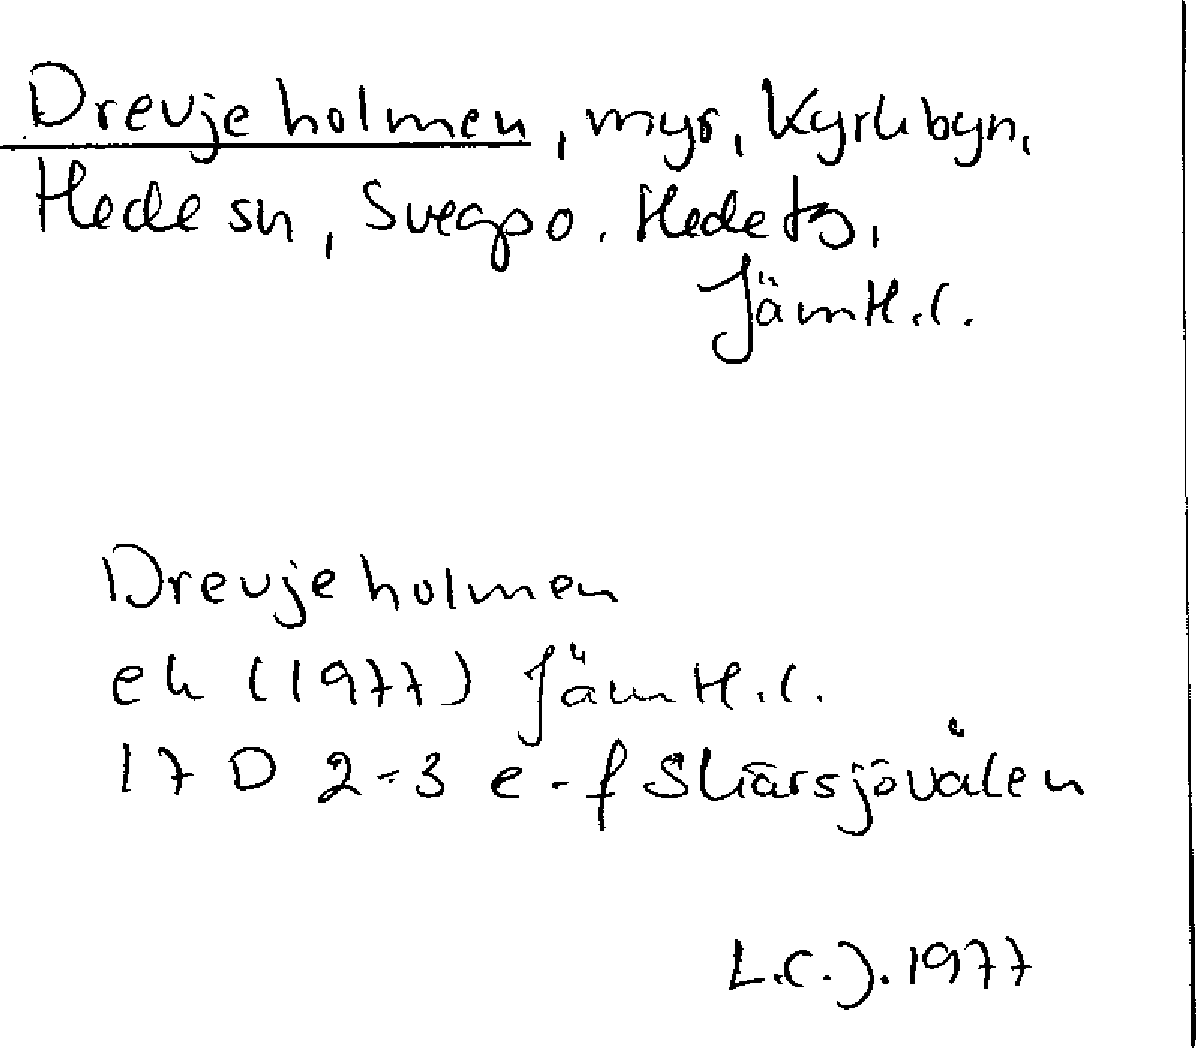 Drevjeholmen, myr, Kyrkbyn,
Hede sn, Svegs po. Hede tg,
Jämtl. l.
Drevjeholmen
ek (1977) Jämtl. l.
17 D 2-3 e-f Skärsjövålen
L.C.J. 1977